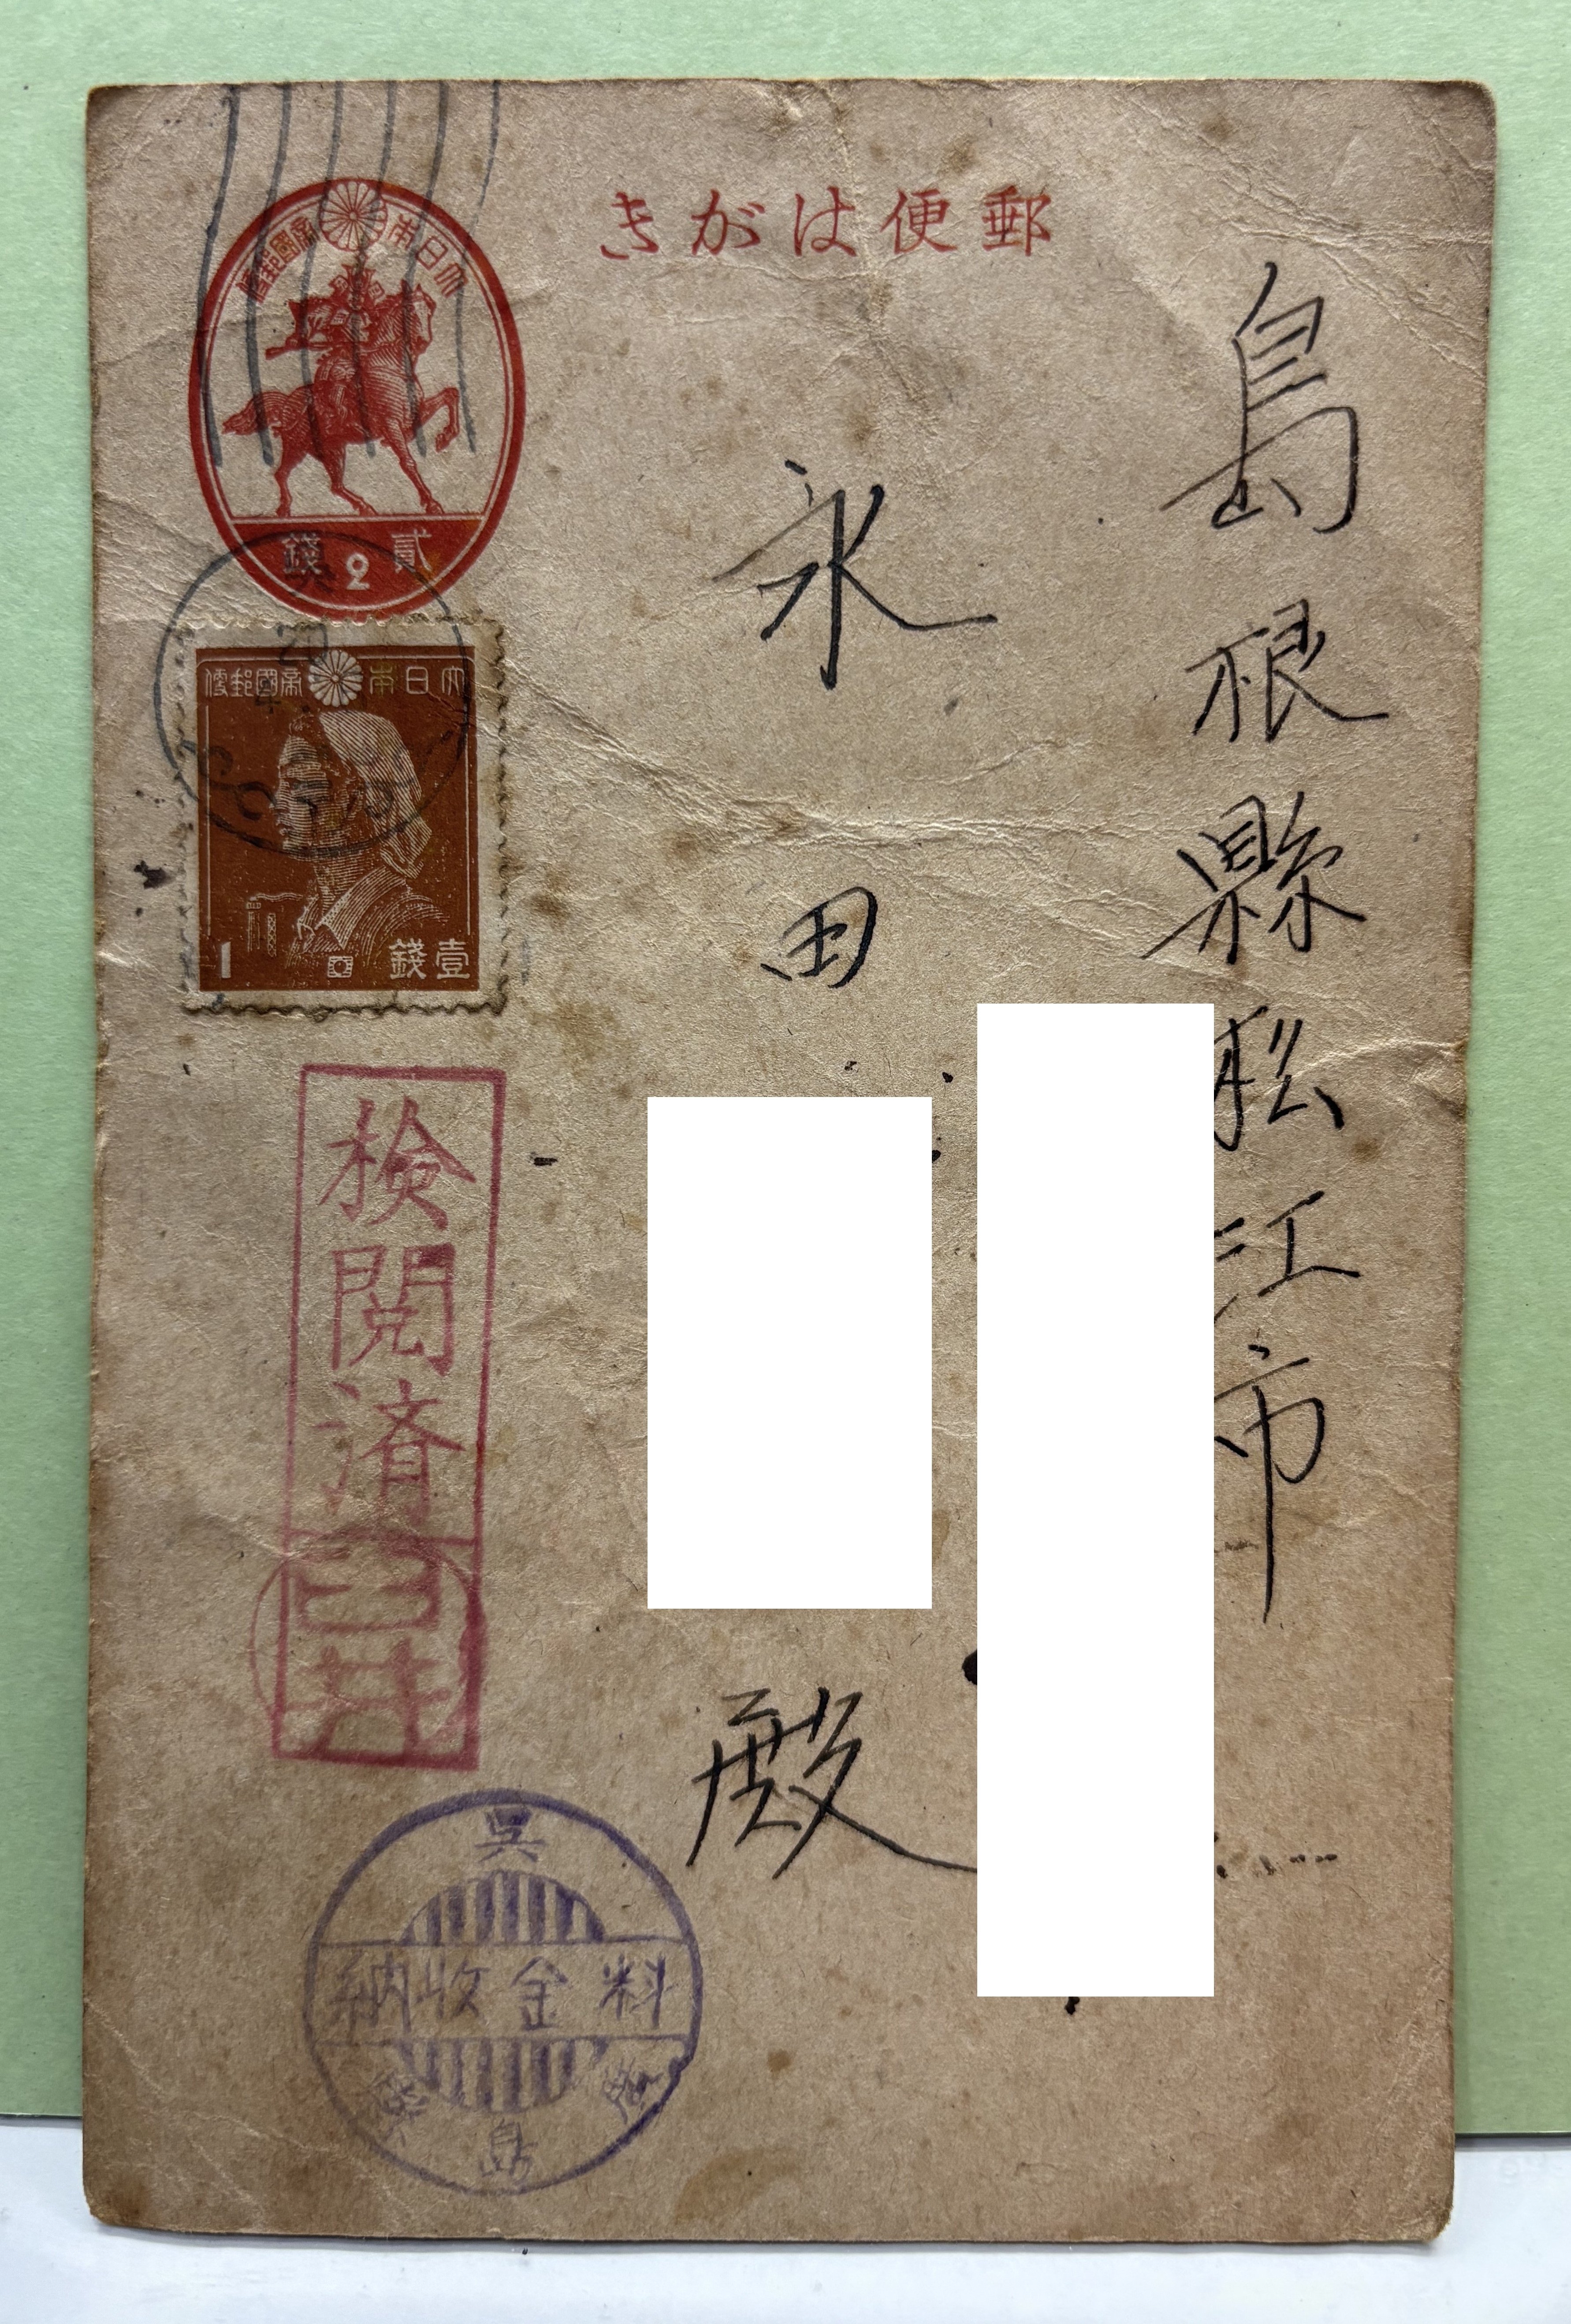 郵便はがき
大日本帝國郵便
貳錢
2
大日本帝國郵便
1
壹錢
呉
20
島根縣松江市
永田
殿
検閲済
臼井
呉
料金收納
島